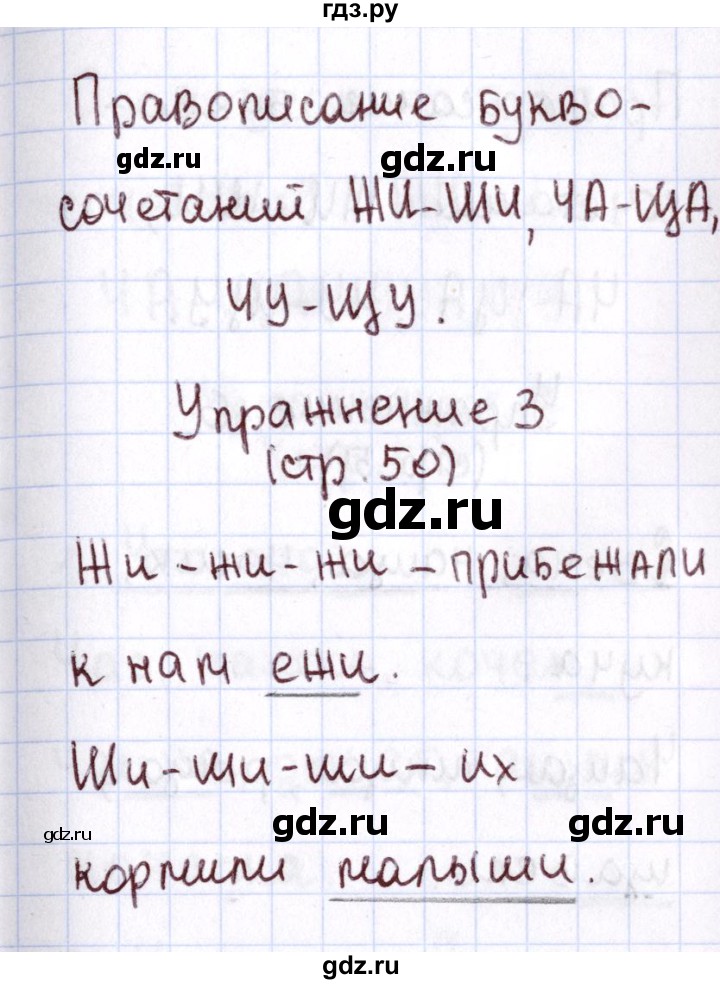 гдз.ру
Правописание букво-
gdz.ru gdz.ru
сочетаний ЖИ-ШИ, ЧА-ЩА,
ЧУ-ЩУ.
Упражнение 3
(стр. 50)
gdz.ru
Жи-жи-жи - прибежали
к нам ежи.
Ши-ши-ши - их
gdz.ru gdz.ru gdz.ru
кормили малыши.
gdz.ru